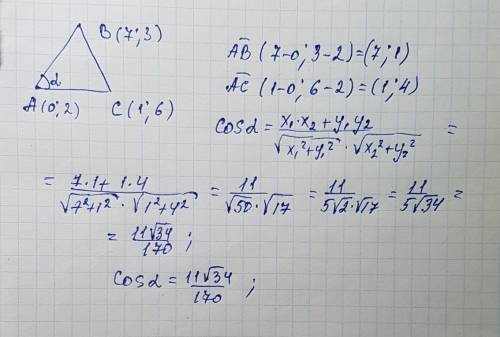 B(7;3)
α
A(0;2)
C(1;6)
AB̄ (7-0; 3-2)=(7;1)
AC̄ (1-0; 6-2)=(1;4)
cosα = x₁·x₂+y₁y₂ / √x₁²+y₁² · √x₂²+y₂² =
= 7·1+1·4 / √7²+1² · √1²+4² = 11 / √50·√17 = 11 / 5√2·√17 = 11 / 5√34 =
= 11√34 / 170 ;
cosα = 11√34 / 170 ;